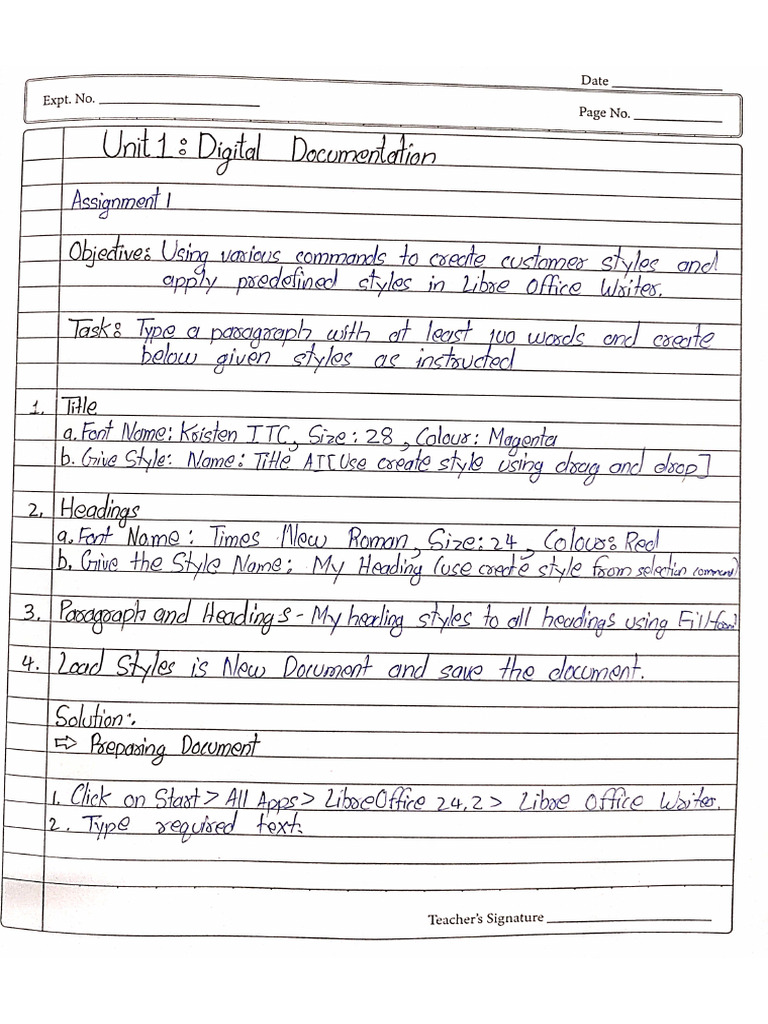 Date
Expt. No.
Page No.
Unit 1 : Digital Documentation
Assignment 1
Objective: Using various commands to create customer styles and
apply predefined styles in Libre Office Writer.
Task: Type a paragraph with at least 100 words and create
below given styles as instructed
1. Title
a. Font Name: Kristen ITC, Size: 28, Colour: Magenta
b. Give Style: Name: Title AI [Use create style using drag and drop]
2. Headings
a. Font Name: Times New Roman, Size: 24, Colour: Red
b. Give the Style Name: My Heading (use create style from selection command)
3. Paragraph and Headings - My healing styles to all headings using
4. Load Styles is New Document and save the document.
Solution:.
⇨ Preparing Document
1. Click on Start > All Apps > LibreOffice 24.2 > Libre Office Writer.
2. Type required text.
Teacher's Signature